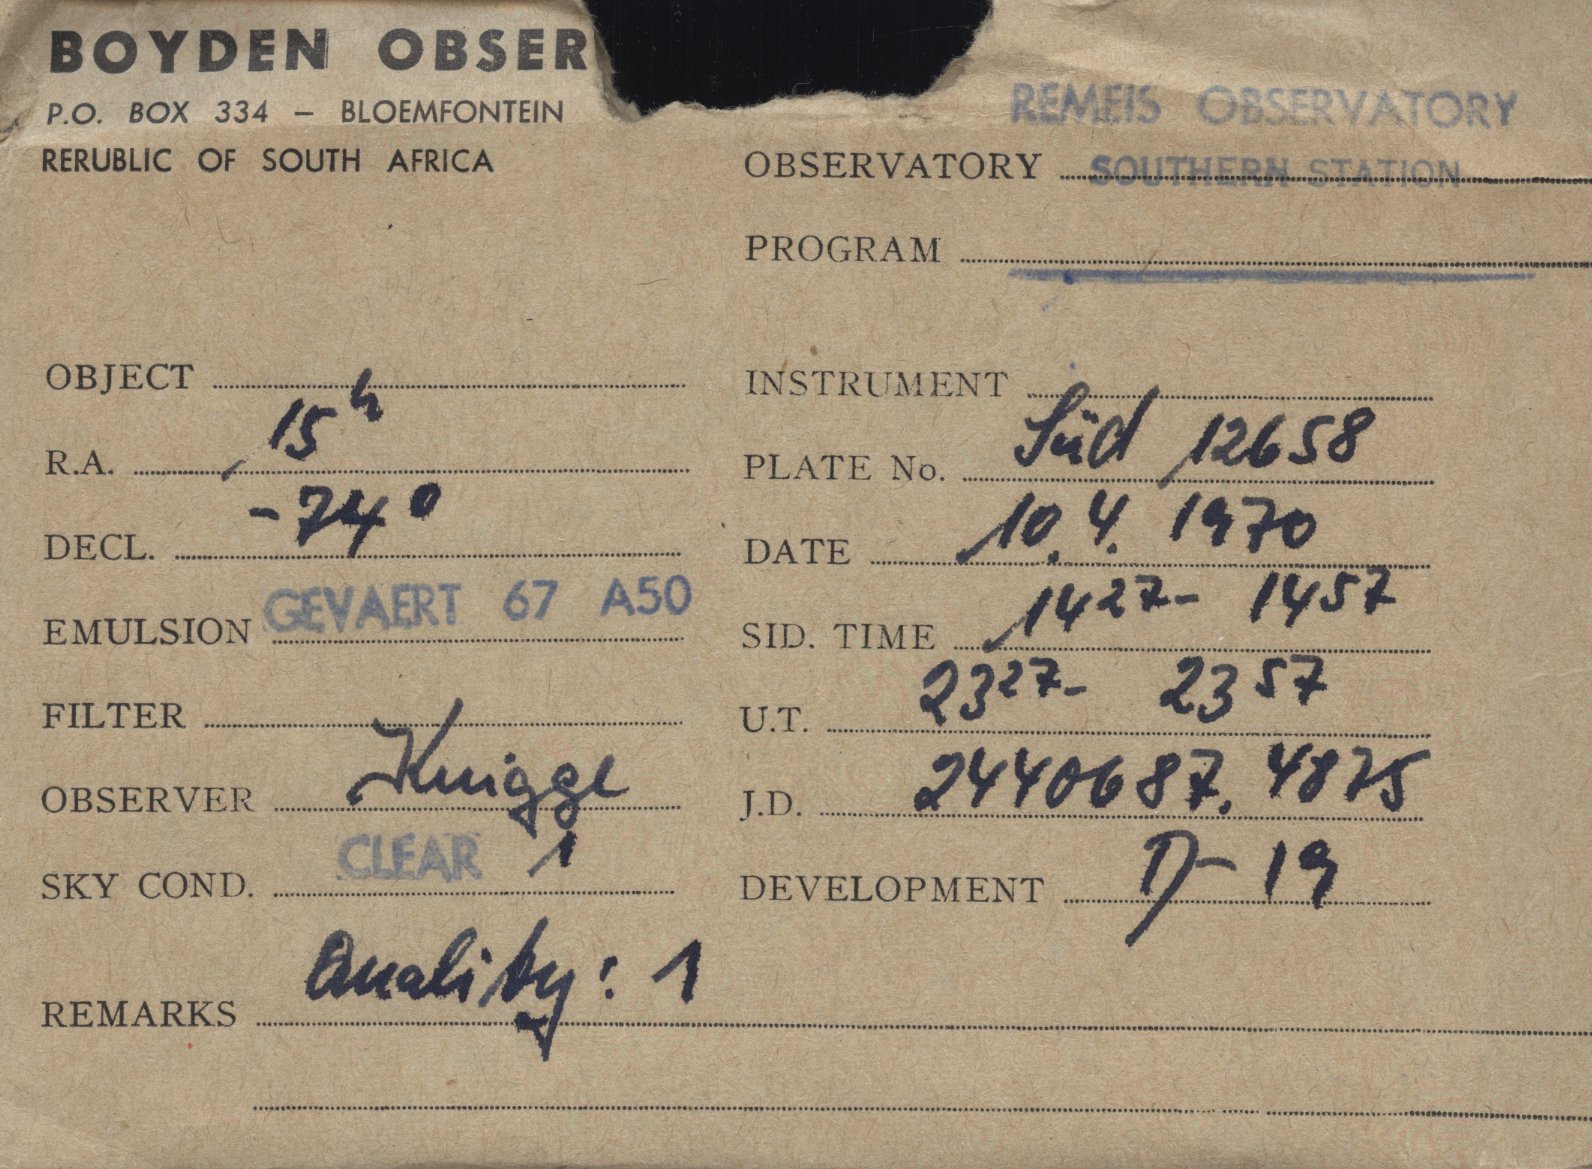 BOYDEN OBSER
P.O. BOX 334 – BLOEMFONTEIN
RERUBLIC OF SOUTH AFRICA
REMEIS OBSERVATORY
OBSERVATORY SOUTHERN STATION
PROGRAM
OBJECT
R.A. 15h
DECL. -74°
EMULSION GEVAERT 67 A50
FILTER
OBSERVER Knigge
SKY COND. CLEAR 1
INSTRUMENT
PLATE No. Süd 12658
DATE 10.4. 1970
SID. TIME 14 27 - 14 57
U.T. 23 27 - 23 57
J.D. 2440687.4875
DEVELOPMENT D-19
REMARKS Quality: 1